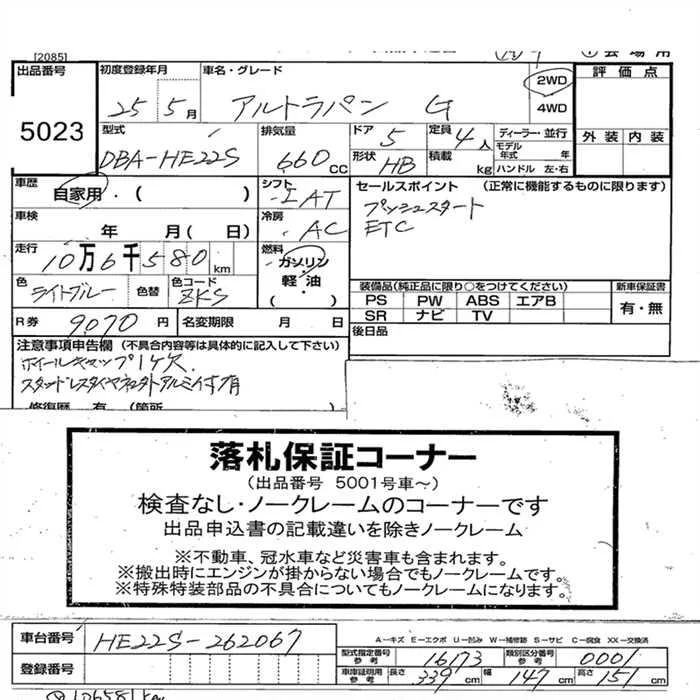 [2085]
出品番号 初度登録年月 車名・グレード 2WD 評価点
5023 25 5月 アルトラパン G 4WD
型式 排気量 ドア 定員 ディーラー・並行 外装 内装
DBA-HE22S 660CC 5 4人 モデル年式 年
形状 HB 積載 kg ハンドル 左・右
車歴 自家用・( ) シフト IAT セールスポイント (正常に機能するものに限ります)
車検 年 月(日) 冷房 AC プッシュスタート
ETC
走行 10万6千580km 燃料 ガソリン・軽油・( )
色 ライトブルー 色替 色コード ZKS 装備品(純正品に限り○をつけてください) 新車保証書
PS PW ABS エアB 有・無
SR ナビ TV
R券 9070円 名変期限 月 日 後日品
注意事項申告欄 (不具合内容等は具体的に記入して下さい)
ホイールキャップ1ケ欠
スタッドレスタイヤ
落札保証コーナー
(出品番号 5001号車～)
検査なし・ノークレームのコーナーです
出品申込書の記載違いを除きノークレーム
※不動車、冠水車など災害車も含まれます。
※搬出時にエンジンが掛からない場合でもノークレームです。
※特殊特装部品の不具合についてもノークレームになります。
車台番号 HE22S-262067 A-キズ E-エクボ U-凹み W-補修跡 S-サビ C-腐食 XX-交換済
型式指定番号 参考 16173 類別区分番号 参考 0001
登録番号 車庫証明用 参考 長さ 339cm 幅 147cm 高さ 151cm
106581km